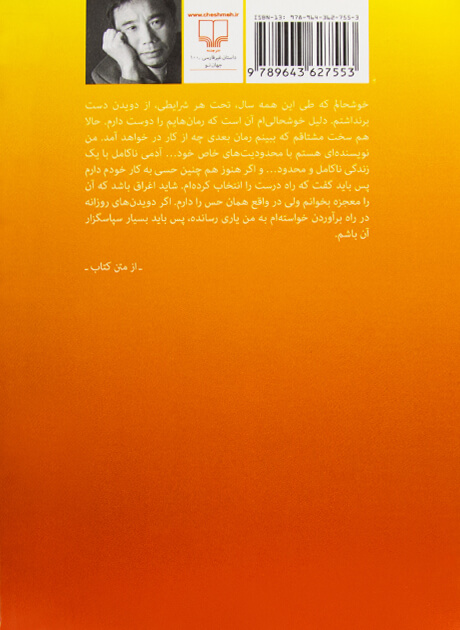 www.cheshmeh.ir
ISBN-13: 978-964-362-755-3
9 789643 627553
داستان غیرفارسی ـ ۱۰۰
جهان‌نو
خوشحالم که طی این همه سال، تحت هر شرایطی، از دویدن دست
برنداشتم. دلیل خوشحالی‌ام آن است که رمان‌هایم را دوست دارم. حالا
هم سخت مشتاقم که ببینم رمان بعدی چه از کار در خواهد آمد. من
نویسنده‌ای هستم با محدودیت‌های خاص خود... آدمی ناکامل با یک
زندگی ناکامل و محدود... و اگر هنوز هم چنین حسی به کار خودم دارم
پس باید گفت که راه درست را انتخاب کرده‌ام. شاید اغراق باشد که آن
را معجزه بخوانم ولی در واقع همان حس را دارم. اگر دویدن‌های روزانه
در راه برآوردن خواسته‌ام به من یاری رسانده، پس باید بسیار سپاسگزار
آن باشم.
ـ از متن کتاب ـ